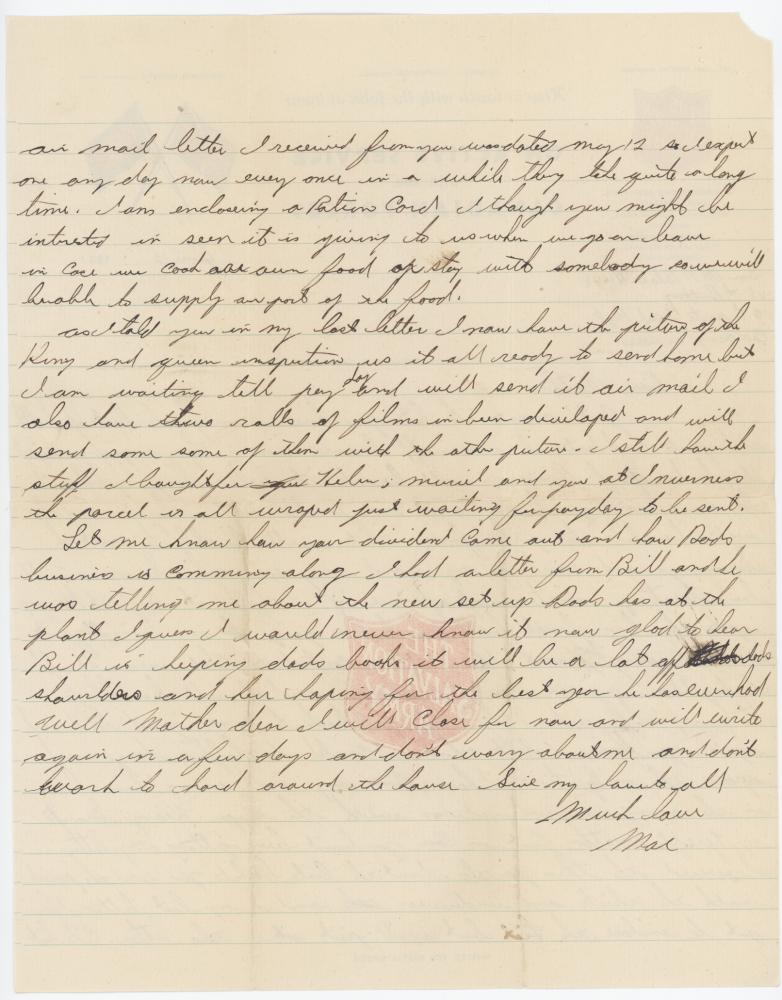 air mail letter I received from you was dated May 12 so I expect
one any day now every once in a while they take quite a long
time. I am enclosering a Ration Card I though you might be
intersted in seen it is giving to us when we go on leave
in case we Cook our own food or stay with somebody so we will
be able to supply our part of the food.
as I told you in my last letter I now have the picture of the
King and queen inspection us it all ready to send home but
I am waiting till pay day and will send it air mail I
also have two rolls of films in been divilaped and will
send some some of them with the other picture. I still have the
stuff I baught for Helen, muriel and you at Inverness
the parcel is all wraped just waiting for payday to be sent.
Let me know how your divident Came out and how Dads
business is Comming along I had a letter from Bill and he
was telling me about the new set up Dads has at the
plant I guess I would never know it now glad to hear
Bill is keeping dads books it will be a lot off dads
shoulders and her hoping for the best year he has ever had
Well Mother dear I will Close for now and will write
again in a few days and don't worry about me and don't
work to hard around the house Give my love to all
Much love
Mac